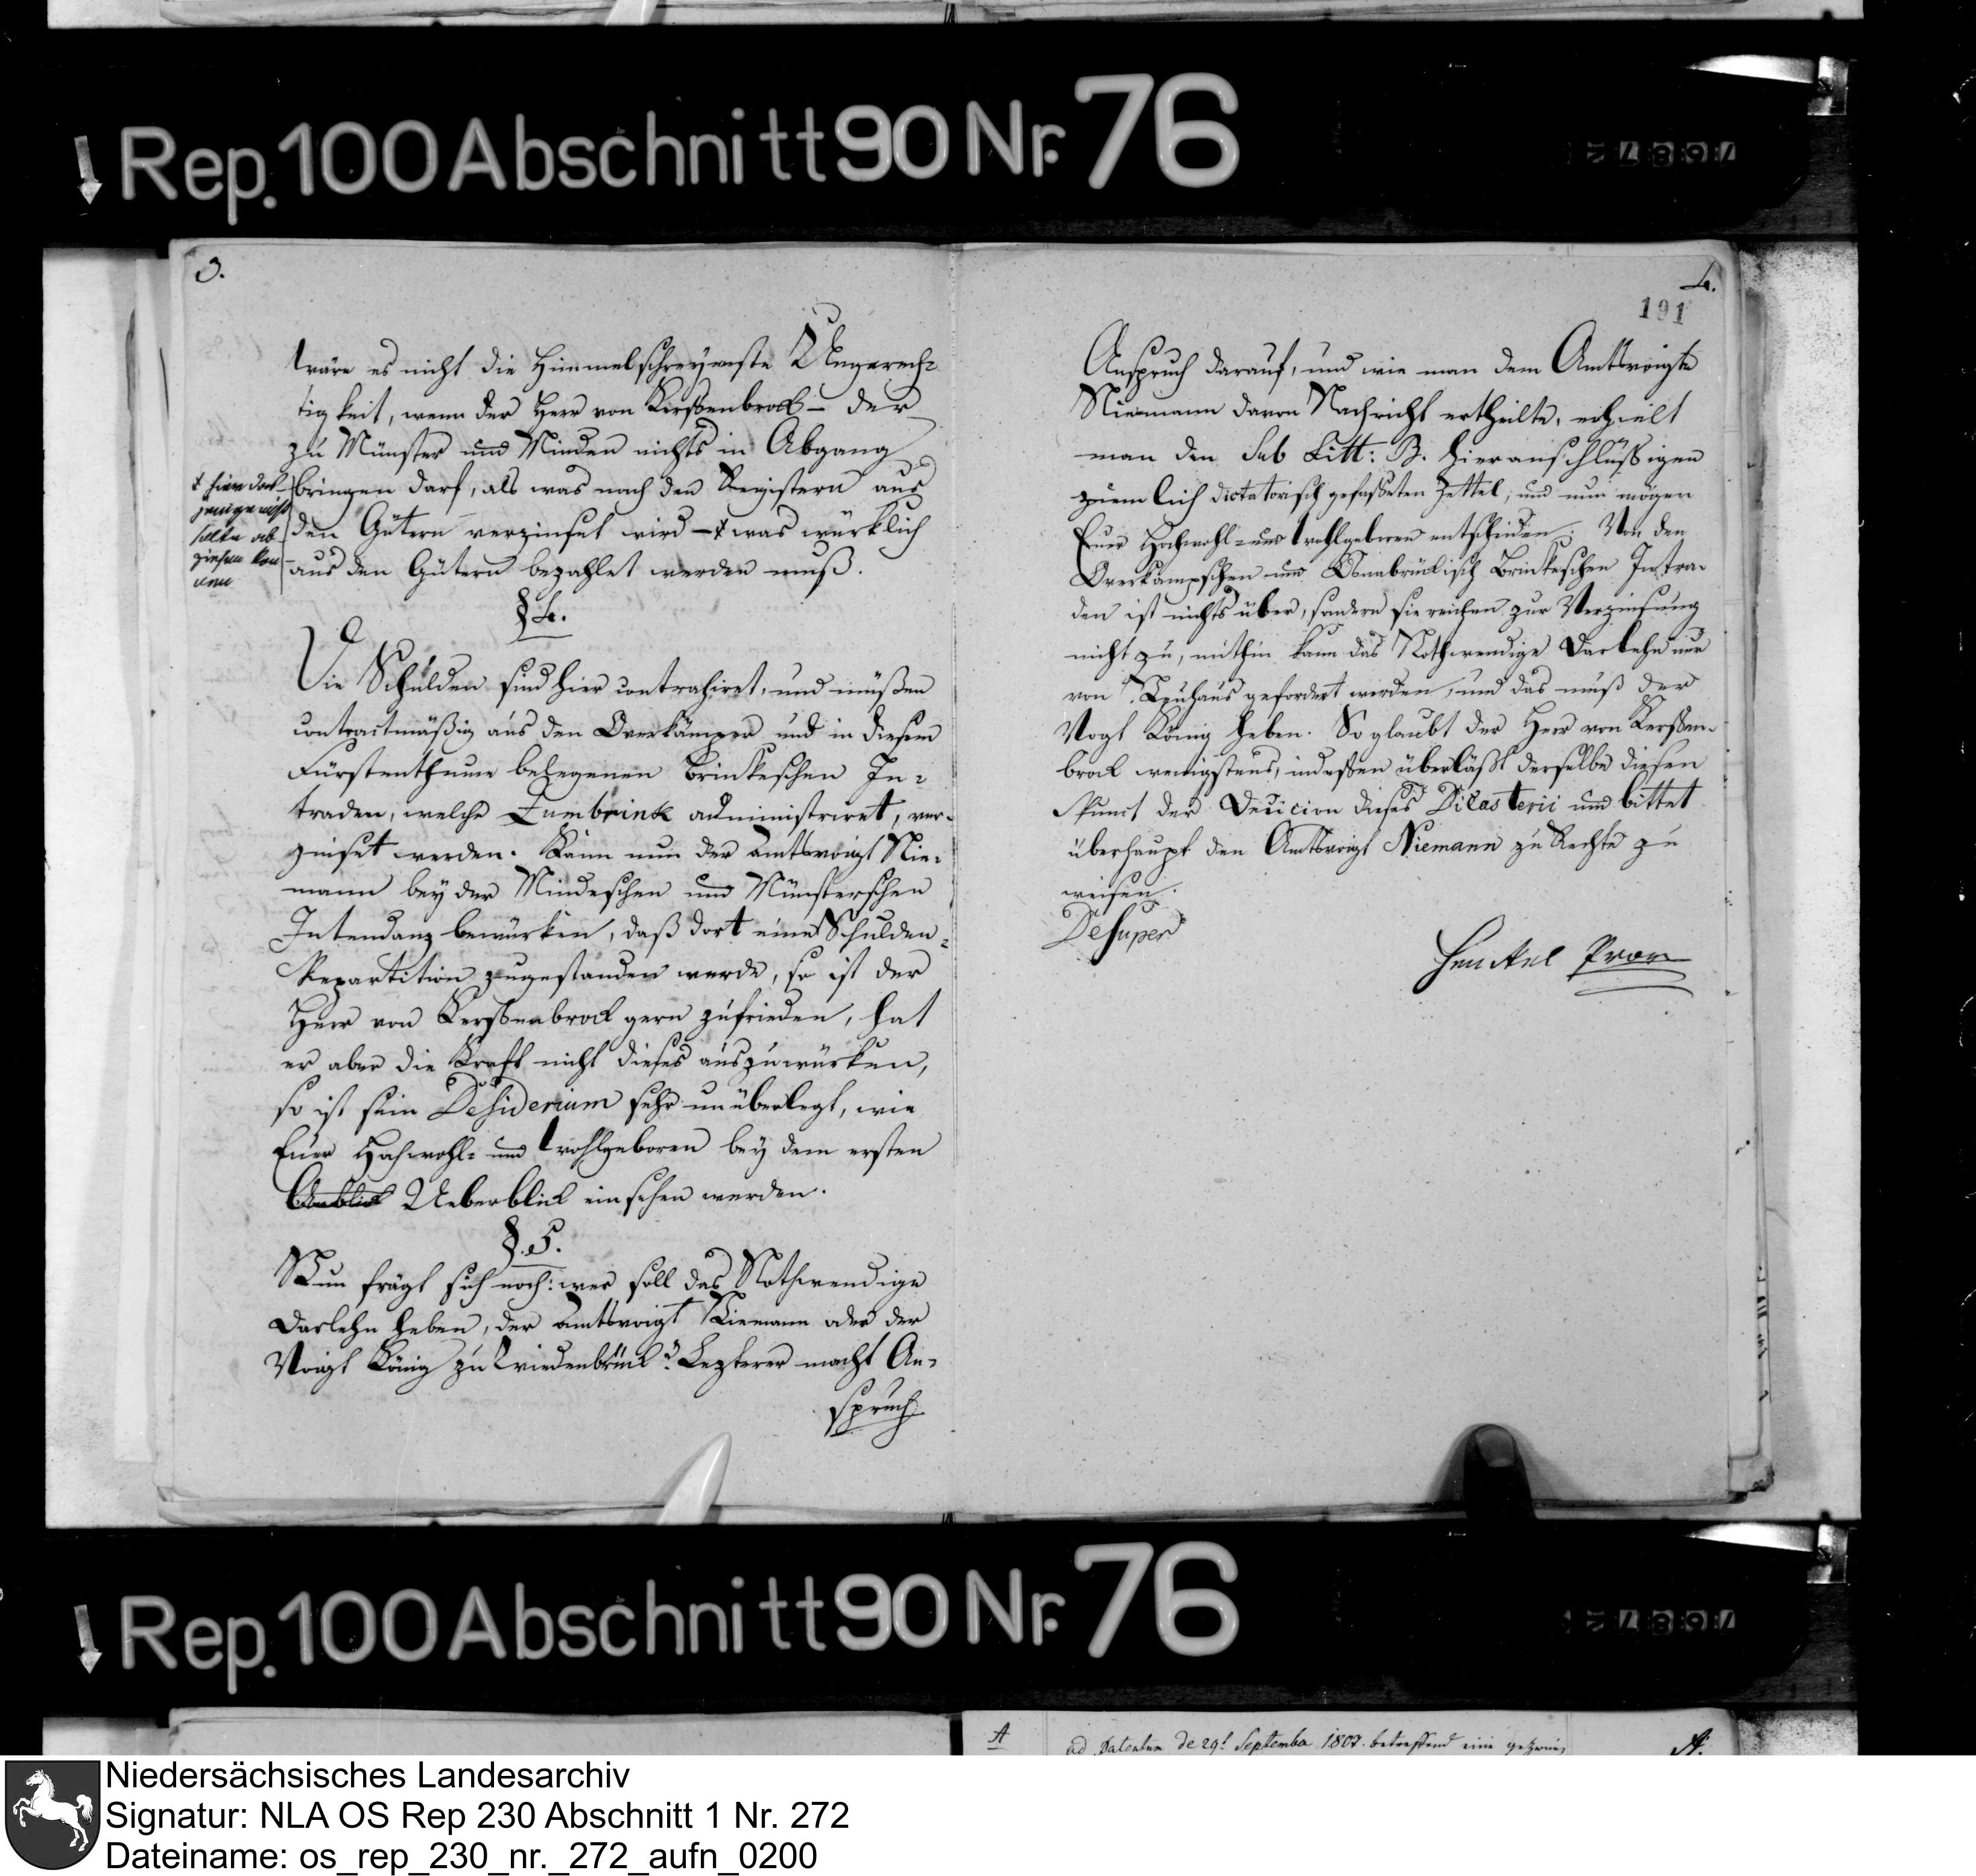 Rep. 100 Abschnitt 90 Nr. 76
3.
wäre es nicht die Himmelschreyenste Ungerech-
tigkeit, wenn der Herr von Kerßenbrock – der
zu Münster und Minden nichts in Abgang
bringen darf, als was nach den Registern aus
den Gütern verzinset wird – ‡ was würklich
aus den Gütern bezahlet werden muß.
‡ hier das-
jenige nicht
sollte ab-
ziehen kön-
nen
§ 4.
Die Schulden sind hier contrahiret, und müßen
contractmäßig aus den Overkämper und in diesem
Fürstenthume belegenen Brinkeschen In-
traden, welche Zumbrink administriret, ver-
zinset werden. Kann nun der Amtsvoigt Nie-
mann bey der Mindeschen und Münsterschen
Intendanz bewürken, daß dort eine Schulden-
Repartition zugestanden werde, so ist der
Herr von Kerßenbrock gern zufrieden, hat
er aber die Kraft nicht dieses auszuwürken,
so ist sein Desiderium sehr unüberlegt, wie
Euer Hochwohl- und Wohlgeboren bey dem ersten
Anblick Ueberblick einsehen werden.
§. 5.
Nun frägt sich noch: wer soll das Nothwendige
Darlehn heben, der Amtsvoigt Niemann oder der
Voigt König zu Wiedenbrück? Lezterer macht An-
spruch
4.
191
Anspruch darauf, und wie man dem Amtsvoigte
Niemann davon Nachricht ertheilte, erhielt
man den Sub Litt: B. hieranschlüßigen
ziemlich dictatorisch gefaßeten Zettel, und nun mögen
Euer Hochwohl- und Wohlgeboren entscheiden. Von den
Overkampschen und Osnabrückisch Brinkeschen Intra-
den ist nichts über, sondern sie reichen zur Verzinsung
nicht zu, mithin kann das Nothwendige Darlehn nur
von Neuhaus gefordert werden, und das muß der
Vogt König heben. So glaubt der Herr von Kerßen-
brock wenigstens, indeßen überläßt derselbe diesen
Punct der Decicion dieses Dicasterii und bittet
überhaupt den Amtsvoigt Niemann zu Rechte zu
weisen.
Desuper
Henckel Pror
Rep. 100 Abschnitt 90 Nr. 76
A
ad Patentum de 29t September 1807. betreffend eine
Niedersächsisches Landesarchiv
Signatur: NLA OS Rep 230 Abschnitt 1 Nr. 272
Dateiname: os_rep_230_nr._272_aufn_0200